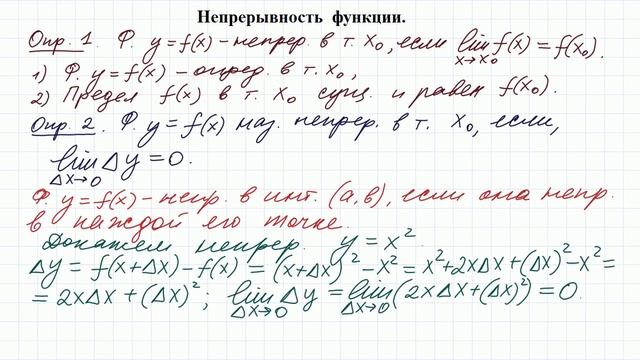 Непрерывность функции.
Опр. 1. Ф. y = f(x) – непрер. в т. x₀, если lim f(x) = f(x₀).
x→x₀
1) Ф. y = f(x) – опред. в т. x₀,
2) Предел f(x) в т. x₀ сущ. и равен f(x₀).
Опр. 2. Ф. y = f(x) наз. непрер. в т. x₀, если,
lim Δy = 0.
Δx→0
Ф. y = f(x) – непр. в инт. (a, в), если она непр.
в каждой его точке.
Докажем непрер. y = x².
Δy = f(x+Δx) – f(x) = (x+Δx)² – x² = x² + 2xΔx + (Δx)² – x² =
= 2xΔx + (Δx)²; lim Δy = lim (2xΔx + (Δx)²) = 0.
Δx→0 Δx→0